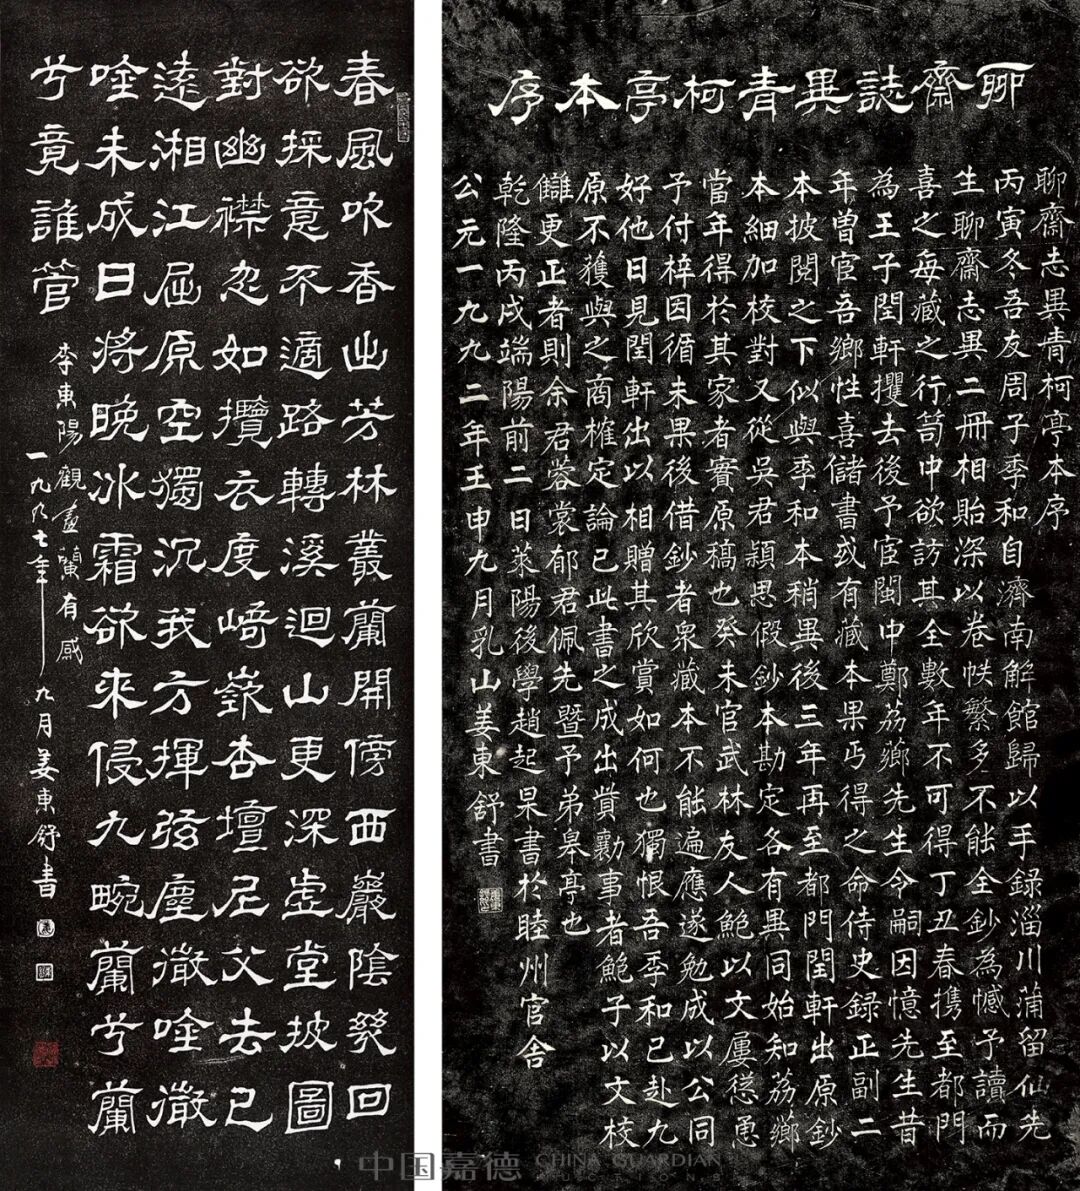 春風吹香出芳林叢蘭開傍西巖陰幾回
欲採意不適路轉溪迴山更深虛堂披圖
對幽襟忽如攬衣度崎嶔杏壇尼父去已
遠湘江屈原空獨沉我方揮弦塵徽唫徽
唫未成日將晚冰霜欲來侵九畹蘭兮蘭
兮竟誰管
李東陽觀畫蘭有感
一九九七年九月姜東舒書
聊齋誌異青柯亭本序
聊齋志異青柯亭本序
丙寅冬吾友周子季和自濟南解館歸以手錄淄川蒲留仙先
生聊齋志異二冊相貽深以卷帙繁多不能全鈔為憾予讀而
喜之每藏之行笥中欲訪其全數年不可得丁丑春攜至都門
為王子閏軒攫去後予宦閩中鄭荔薌先生令嗣因憶先生昔
年曾宦吾鄉性喜儲書或有藏本果丐得之命侍史錄正副二
本披閱之下似與季和本稍異後三年再至都門閏軒出原鈔
本細加校對又從吳君穎思假鈔本勘定各有異同始知荔薌
當年得於其家者實原稿也癸未官武林友人鮑以文屢慫恿
予付梓因循未果後借鈔者眾藏本不能遍應遂勉成以公同
好他日見閏軒出以相贈其欣賞如何也獨恨吾季和已赴九
原不獲與之商榷定論已此書之成出貲勷事者鮑子以文校
讎更正者則余君蓉裳郁君佩先暨予弟皋亭也
乾隆丙戌端陽前二日萊陽後學趙起杲書於睦州官舍
公元一九九二年壬申九月乳山姜東舒書
中国嘉德 CHINA GUARDIAN
AUCTIONS